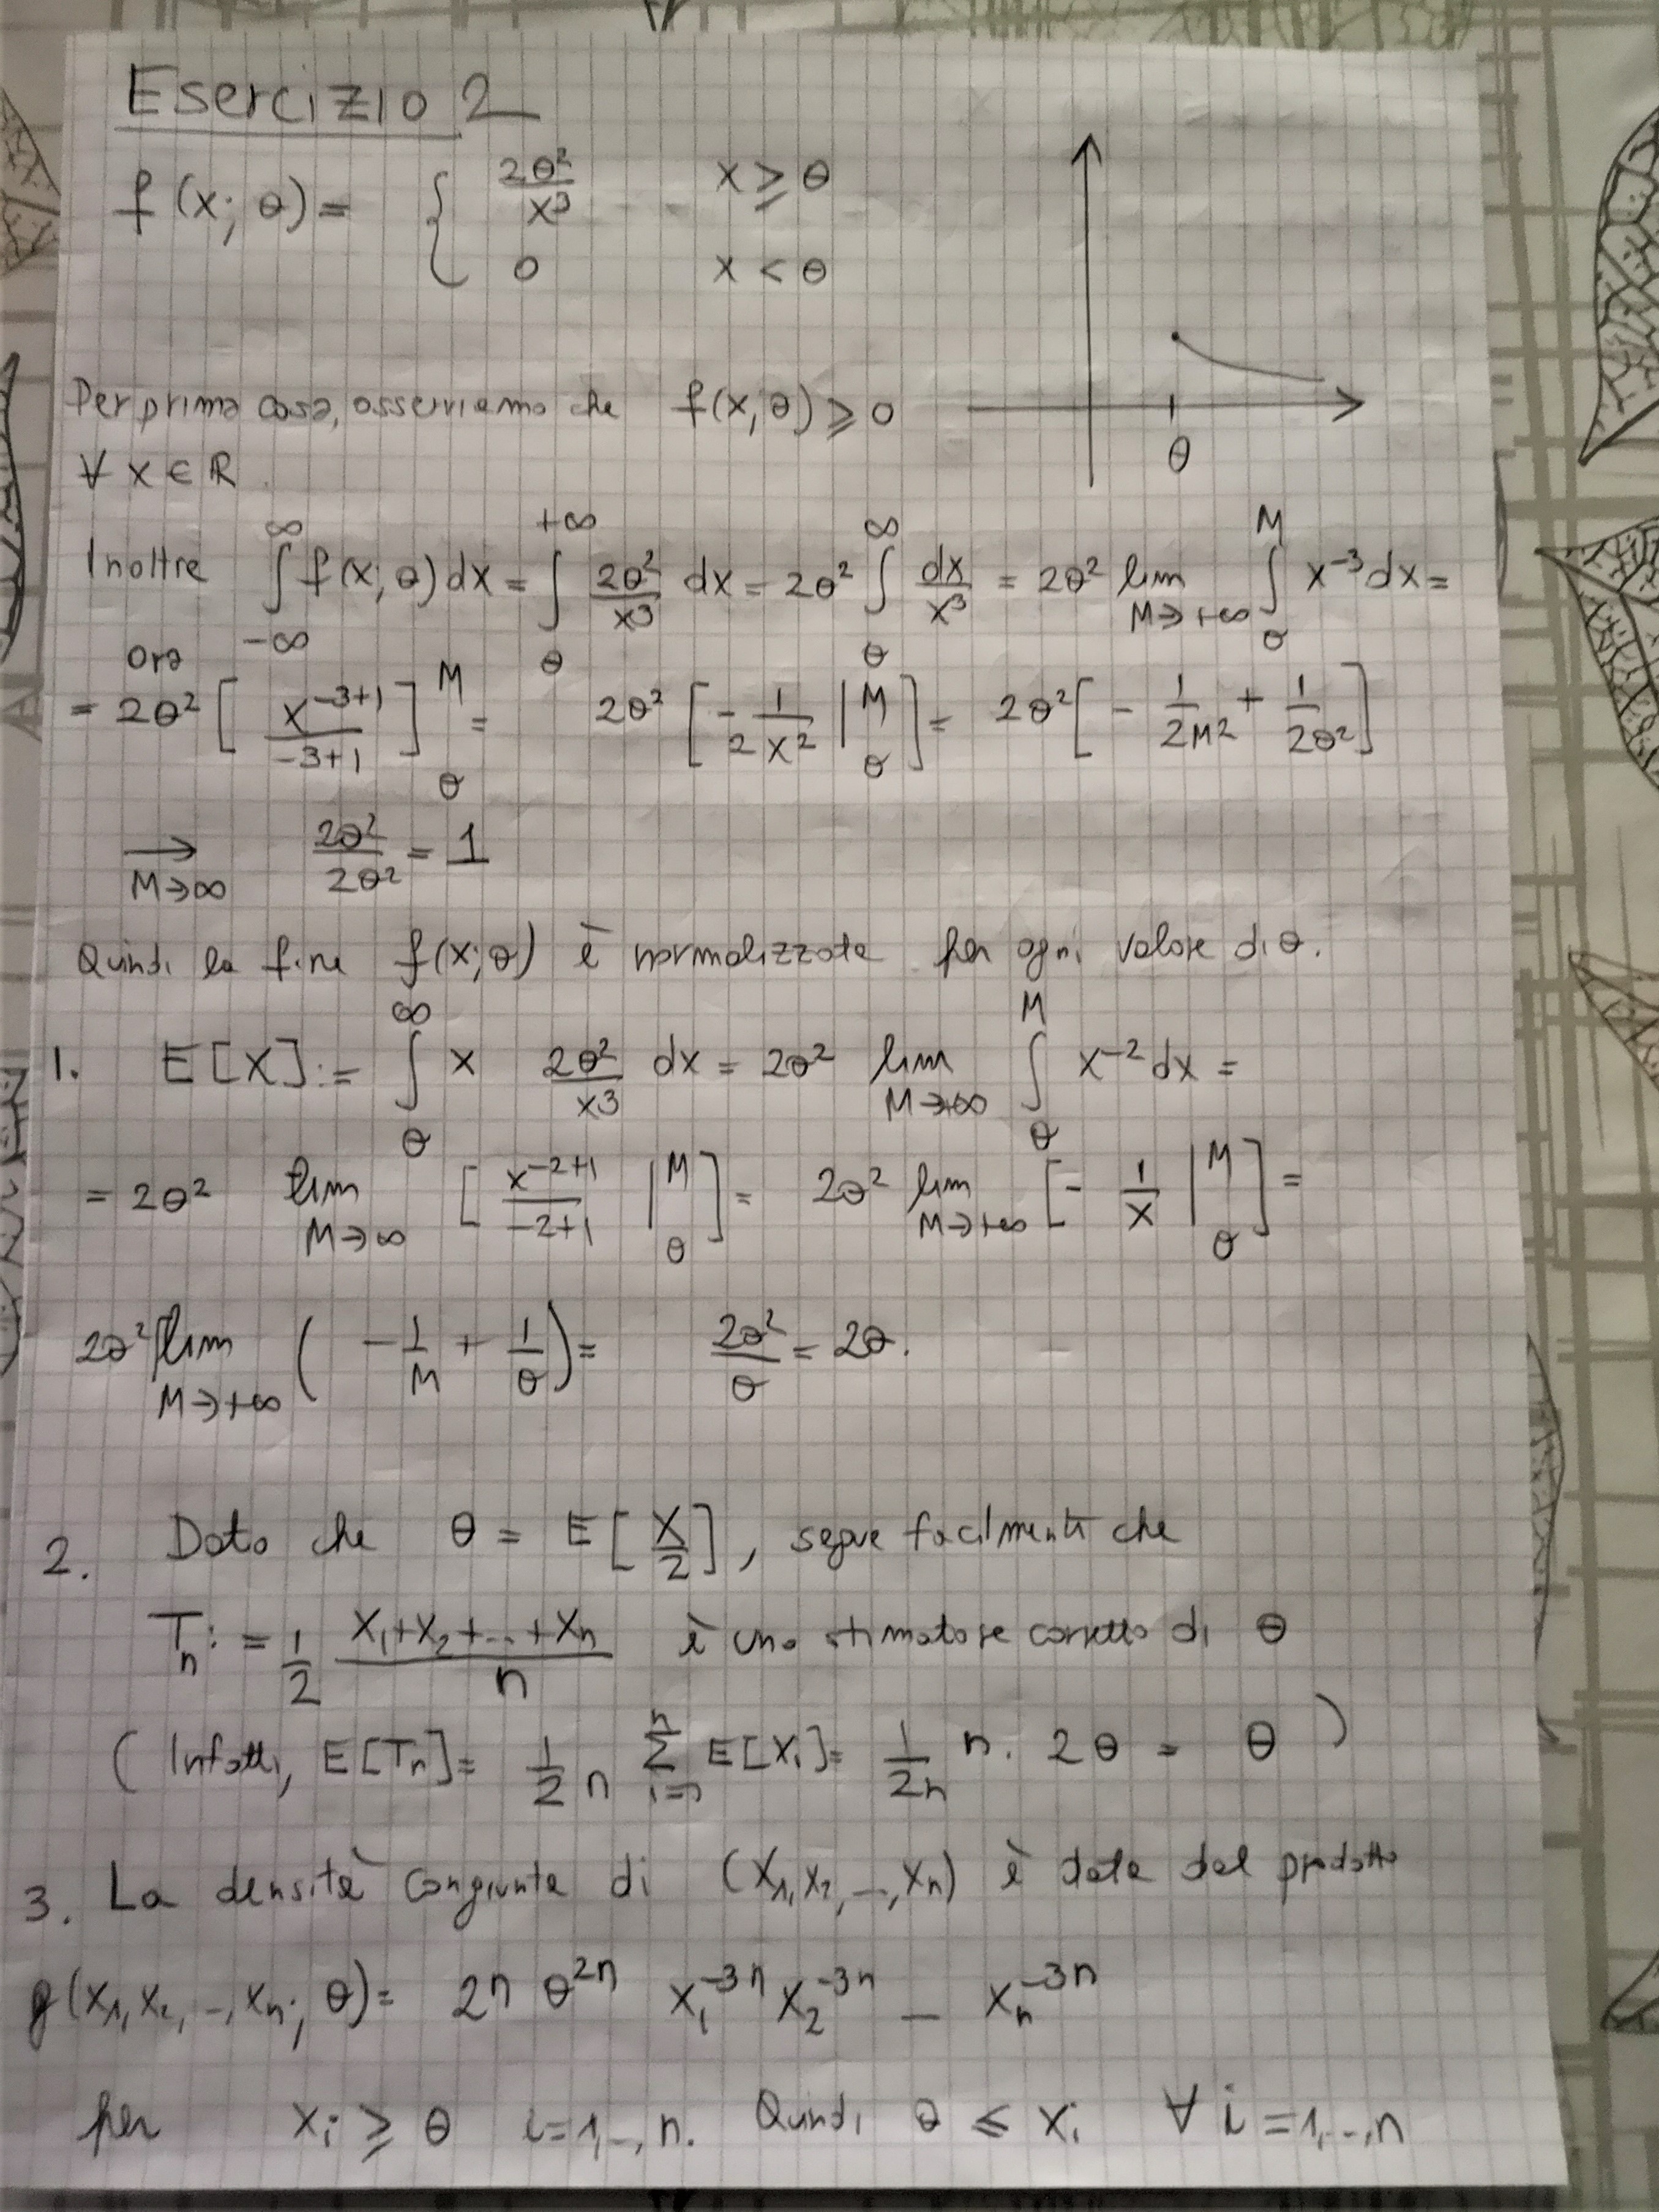 Esercizio 2
f(x; θ) = { 2θ²/x³   x ≥ θ
0   x < θ
Per prima cosa, osserviamo che f(x, θ) ≥ 0
θ
∀ x ∈ ℝ.
Inoltre ∫_{-∞}^{∞} f(x; θ) dx = ∫_θ^{+∞} 2θ²/x³ dx = 2θ² ∫_θ^∞ dx/x³ = 2θ² lim_{M→+∞} ∫_θ^M x^{-3} dx =
ora
= 2θ² [ x^{-3+1}/(-3+1) ]_θ^M = 2θ² [ -1/(2x²) |_θ^M ] = 2θ² [ -1/(2M²) + 1/(2θ²) ]
→_{M→∞} 2θ²/2θ² = 1
Quindi la f.ne f(x; θ) è normalizzata per ogni valore di θ.
1. E[X] := ∫_θ^∞ x 2θ²/x³ dx = 2θ² lim_{M→+∞} ∫_θ^M x^{-2} dx =
= 2θ² lim_{M→∞} [ x^{-2+1}/(-2+1) |_θ^M ] = 2θ² lim_{M→+∞} [ -1/x |_θ^M ] =
2θ² lim_{M→+∞} ( -1/M + 1/θ ) = 2θ²/θ = 2θ.
2. Dato che θ = E[X/2], segue facilmente che
T_n := 1/2 (X₁+X₂+...+X_n)/n è uno stimatore corretto di θ
( Infatti, E[T_n] = 1/2n Σ_{i=1}^n E[X_i] = 1/2n n · 2θ = θ )
3. La densità congiunta di (X₁, X₂, ..., X_n) è data dal prodotto
g(x₁, x₂, .., x_n; θ) = 2^n θ^{2n} x₁^{-3n} x₂^{-3n} ... x_n^{-3n}
per x_i ≥ θ i=1,..,n. Quindi θ ≤ x_i ∀ i=1,..,n